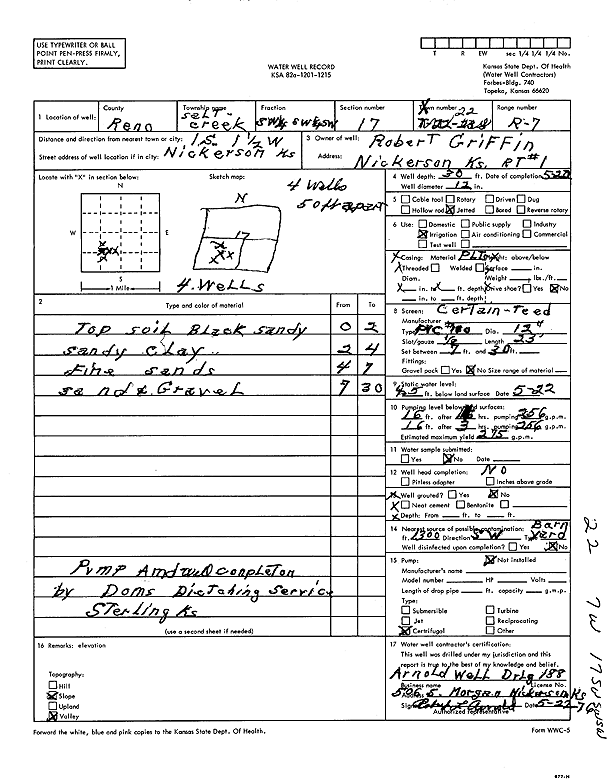 USE TYPEWRITER OR BALL
POINT PEN-PRESS FIRMLY,
PRINT CLEARLY.
WATER WELL RECORD
KSA 82a-1201-1215
T R EW sec 1/4 1/4 1/4 No.
Kansas State Dept. Of Health
(Water Well Contractors)
Forbes-Bldg. 740
Topeka, Kansas 66620
1 Location of well:
County
Reno
Township name
Salt creek
Fraction
SW¼ SW¼ SW
Section number
17
Town number
22
Range number
R-7
Distance and direction from nearest town or city: 1 S. 1½ W
Street address of well location if in city: Nickerson Ks
3 Owner of well: Robert Griffin
Address: Nickerson Ks. RT #1
Locate with "X" in section below:
N
W E
S
1 Mile
Sketch map:
N
17
4 Wells
50 ft apart
4. Wells
2 Type and color of material From To
Top soil Black sandy 0 2
sandy clay 2 4
fine sands 4 7
sand & Gravel 7 30
Pump And well conpleton
by Doms Dictching Service
Sterling Ks
(use a second sheet if needed)
4 Well depth: 30 ft. Date of completion 5-22
Well diameter 12 in.
5 Cable tool Rotary Driven Dug
Hollow rod Jetted Bored Reverse rotary
6 Use: Domestic Public supply Industry
Irrigation Air conditioning Commercial
Test well
7 Casing: Material Height: above/below
Threaded Welded Surface in.
Diam. Weight lbs./ft.
in. to ft. depth Drive shoe? Yes No
in. to ft. depth
8 Screen: Certain-Teed
Manufacturer
Type PVC 160 Dia. 12"
Slot/gauze 1/8 Length 23'
Set between 7 ft. and 30 ft.
Fittings:
Gravel pack Yes No Size range of material
9 Static water level:
ft. below land surface Date 5-22
10 Pumping level below land surfaces:
16 ft. after hrs. pumping 256 g.p.m.
16 ft. after 3 hrs. pumping 256 g.p.m.
Estimated maximum yield 275 g.p.m.
11 Water sample submitted:
Yes No Date
12 Well head completion: NO
Pitless adapter Inches above grade
13 Well grouted? Yes No
Neat cement Bentonite
Depth: From ft. to ft.
14 Nearest source of possible contamination: Barn
ft. 1300 Direction SW Type Yard
Well disinfected upon completion? Yes No
15 Pump: Not installed
Manufacturer's name
Model number HP Volts
Length of drop pipe ft. capacity g.m.p.
Type:
Submersible Turbine
Jet Reciprocating
Centrifugal Other
16 Remarks: elevation
Topography:
Hill
Slope
Upland
Valley
17 Water well contractor's certification:
This well was drilled under my jurisdiction and this
report is true to the best of my knowledge and belief.
Arnold Well Drlg 188
Business name License No.
Address 506 S. Morgan Nickerson Ks
Signed Robert L Arnold Date 5-22-76
Authorized representative
Forward the white, blue and pink copies to the Kansas State Dept. Of Health.
Form WWC-5
22 7W 17 SW SW SW